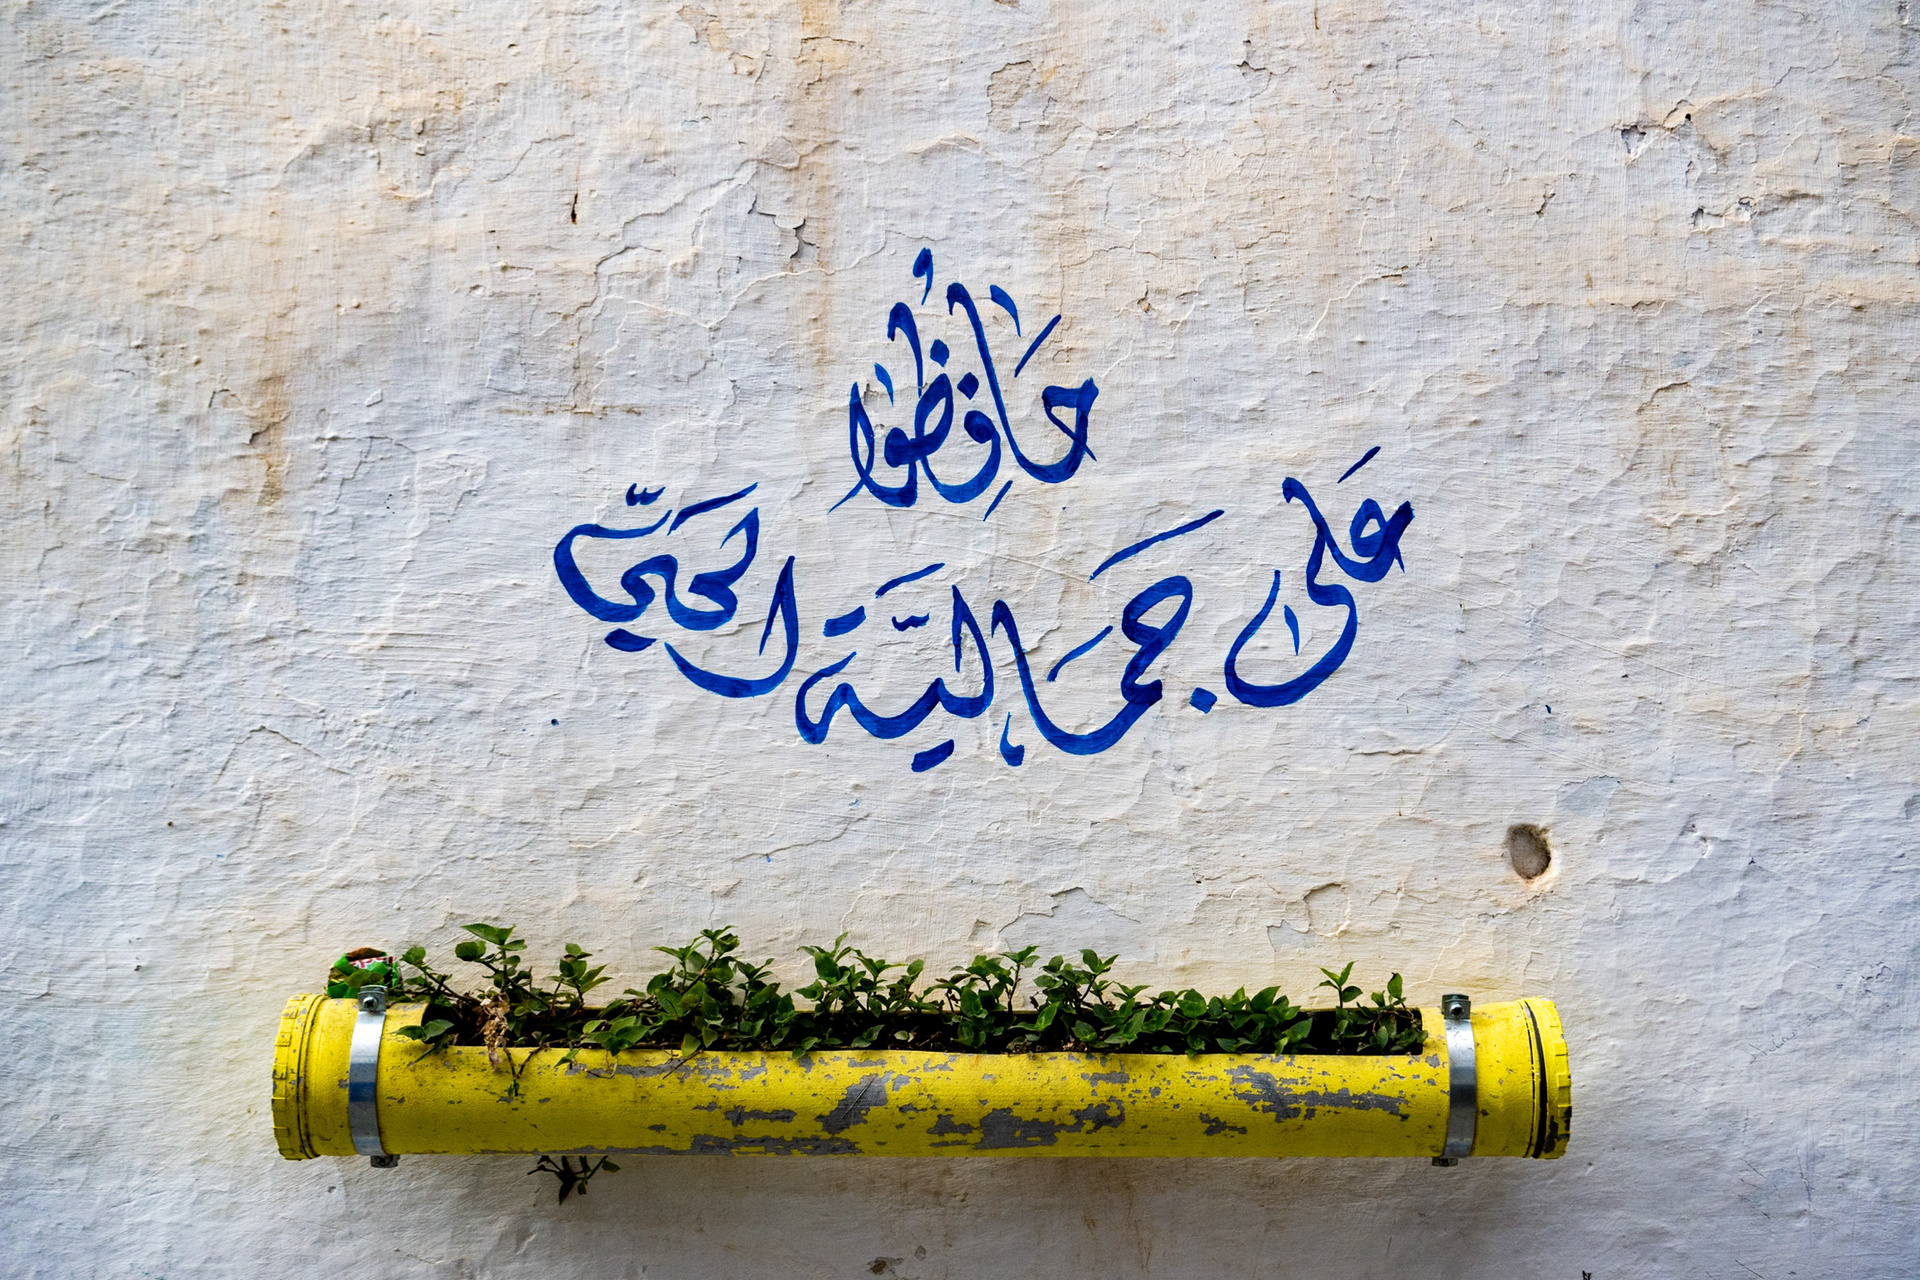 حَافِظُوا
عَلى جَمَاليَّة الحَيّ